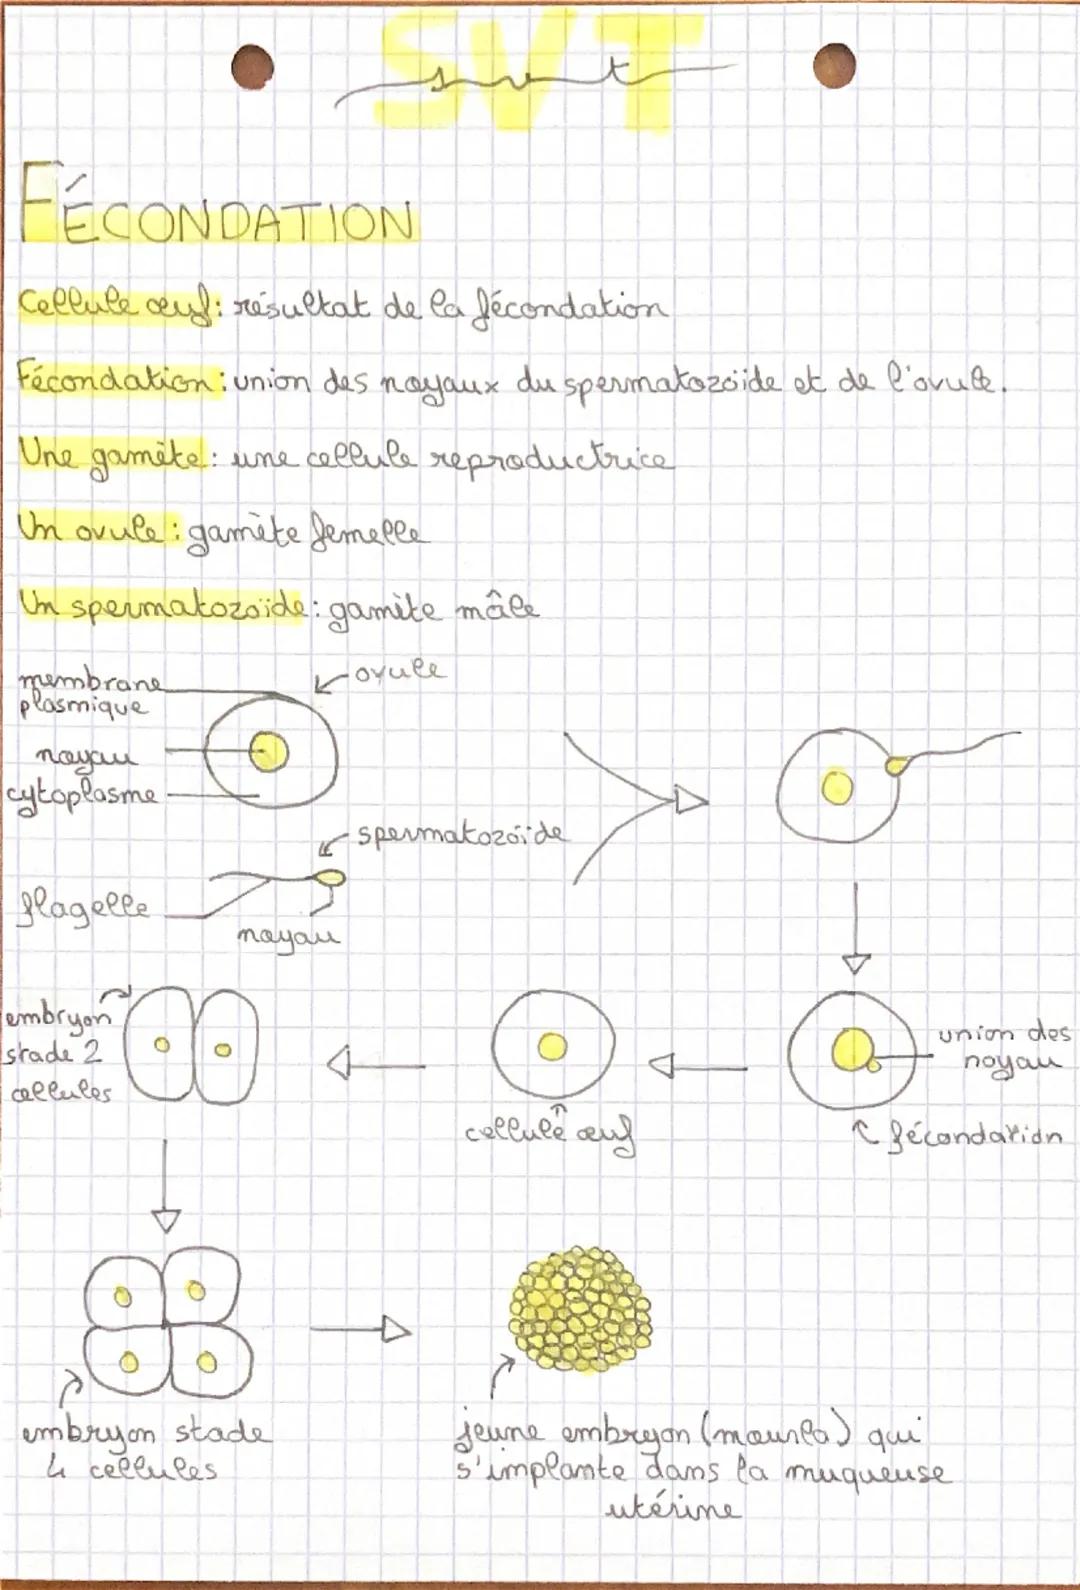 SVT
svt
FÉCONDATION
Cellule œuf : résultat de la fécondation
Fécondation : union des noyaux du spermatozoïde et de l'ovule.
Une gamète : une cellule reproductrice
Un ovule : gamète femelle
Un spermatozoïde : gamète mâle
ovule
membrane
plasmique
noyau
cytoplasme
spermatozoïde
flagelle
noyau
embryon
stade 2
cellules
cellule œuf
union des
noyau
fécondation
embryon stade
4 cellules
jeune embryon (mourla) qui
s'implante dans la muqueuse
utérine